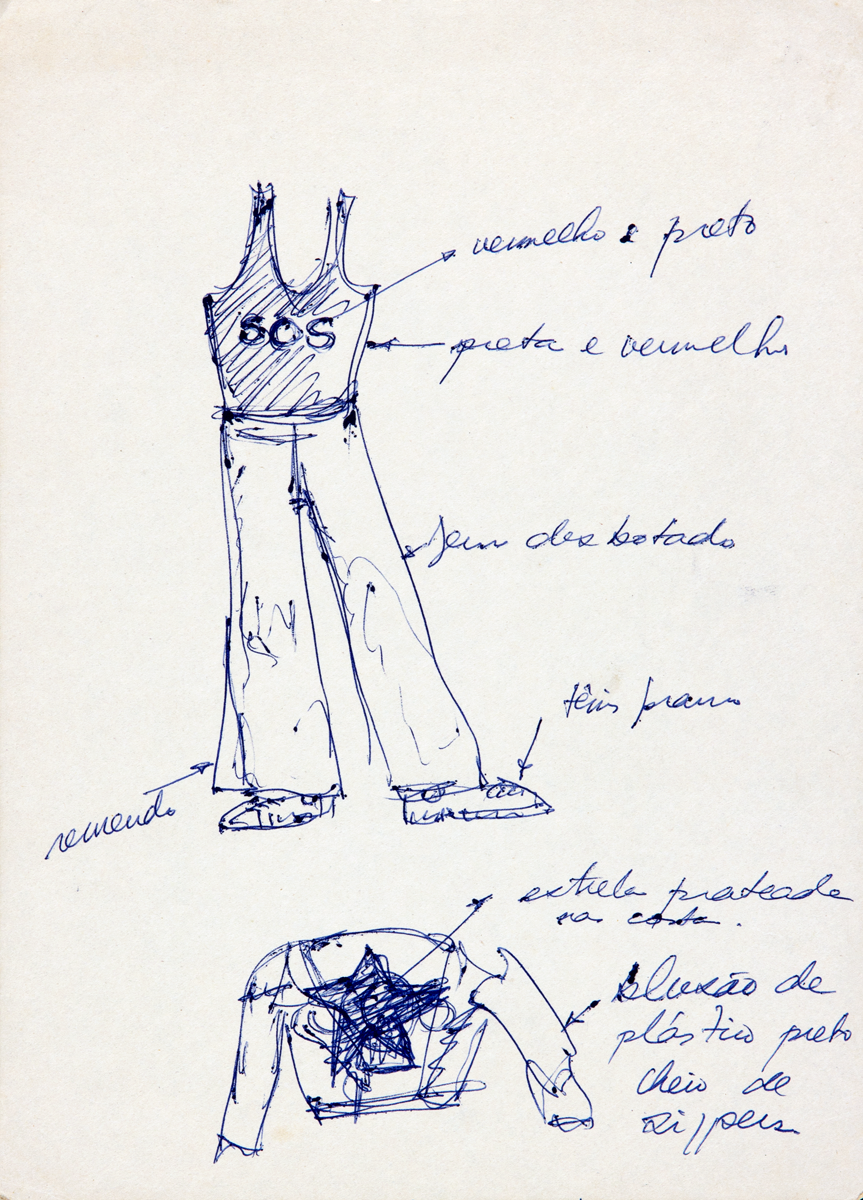 vermelho e preto
SOS
preta e vermelho
Jeans desbotado
tênis
remendo
estrela prateada
nas costa.
blusão de
plástico preto
cheio de
zippers